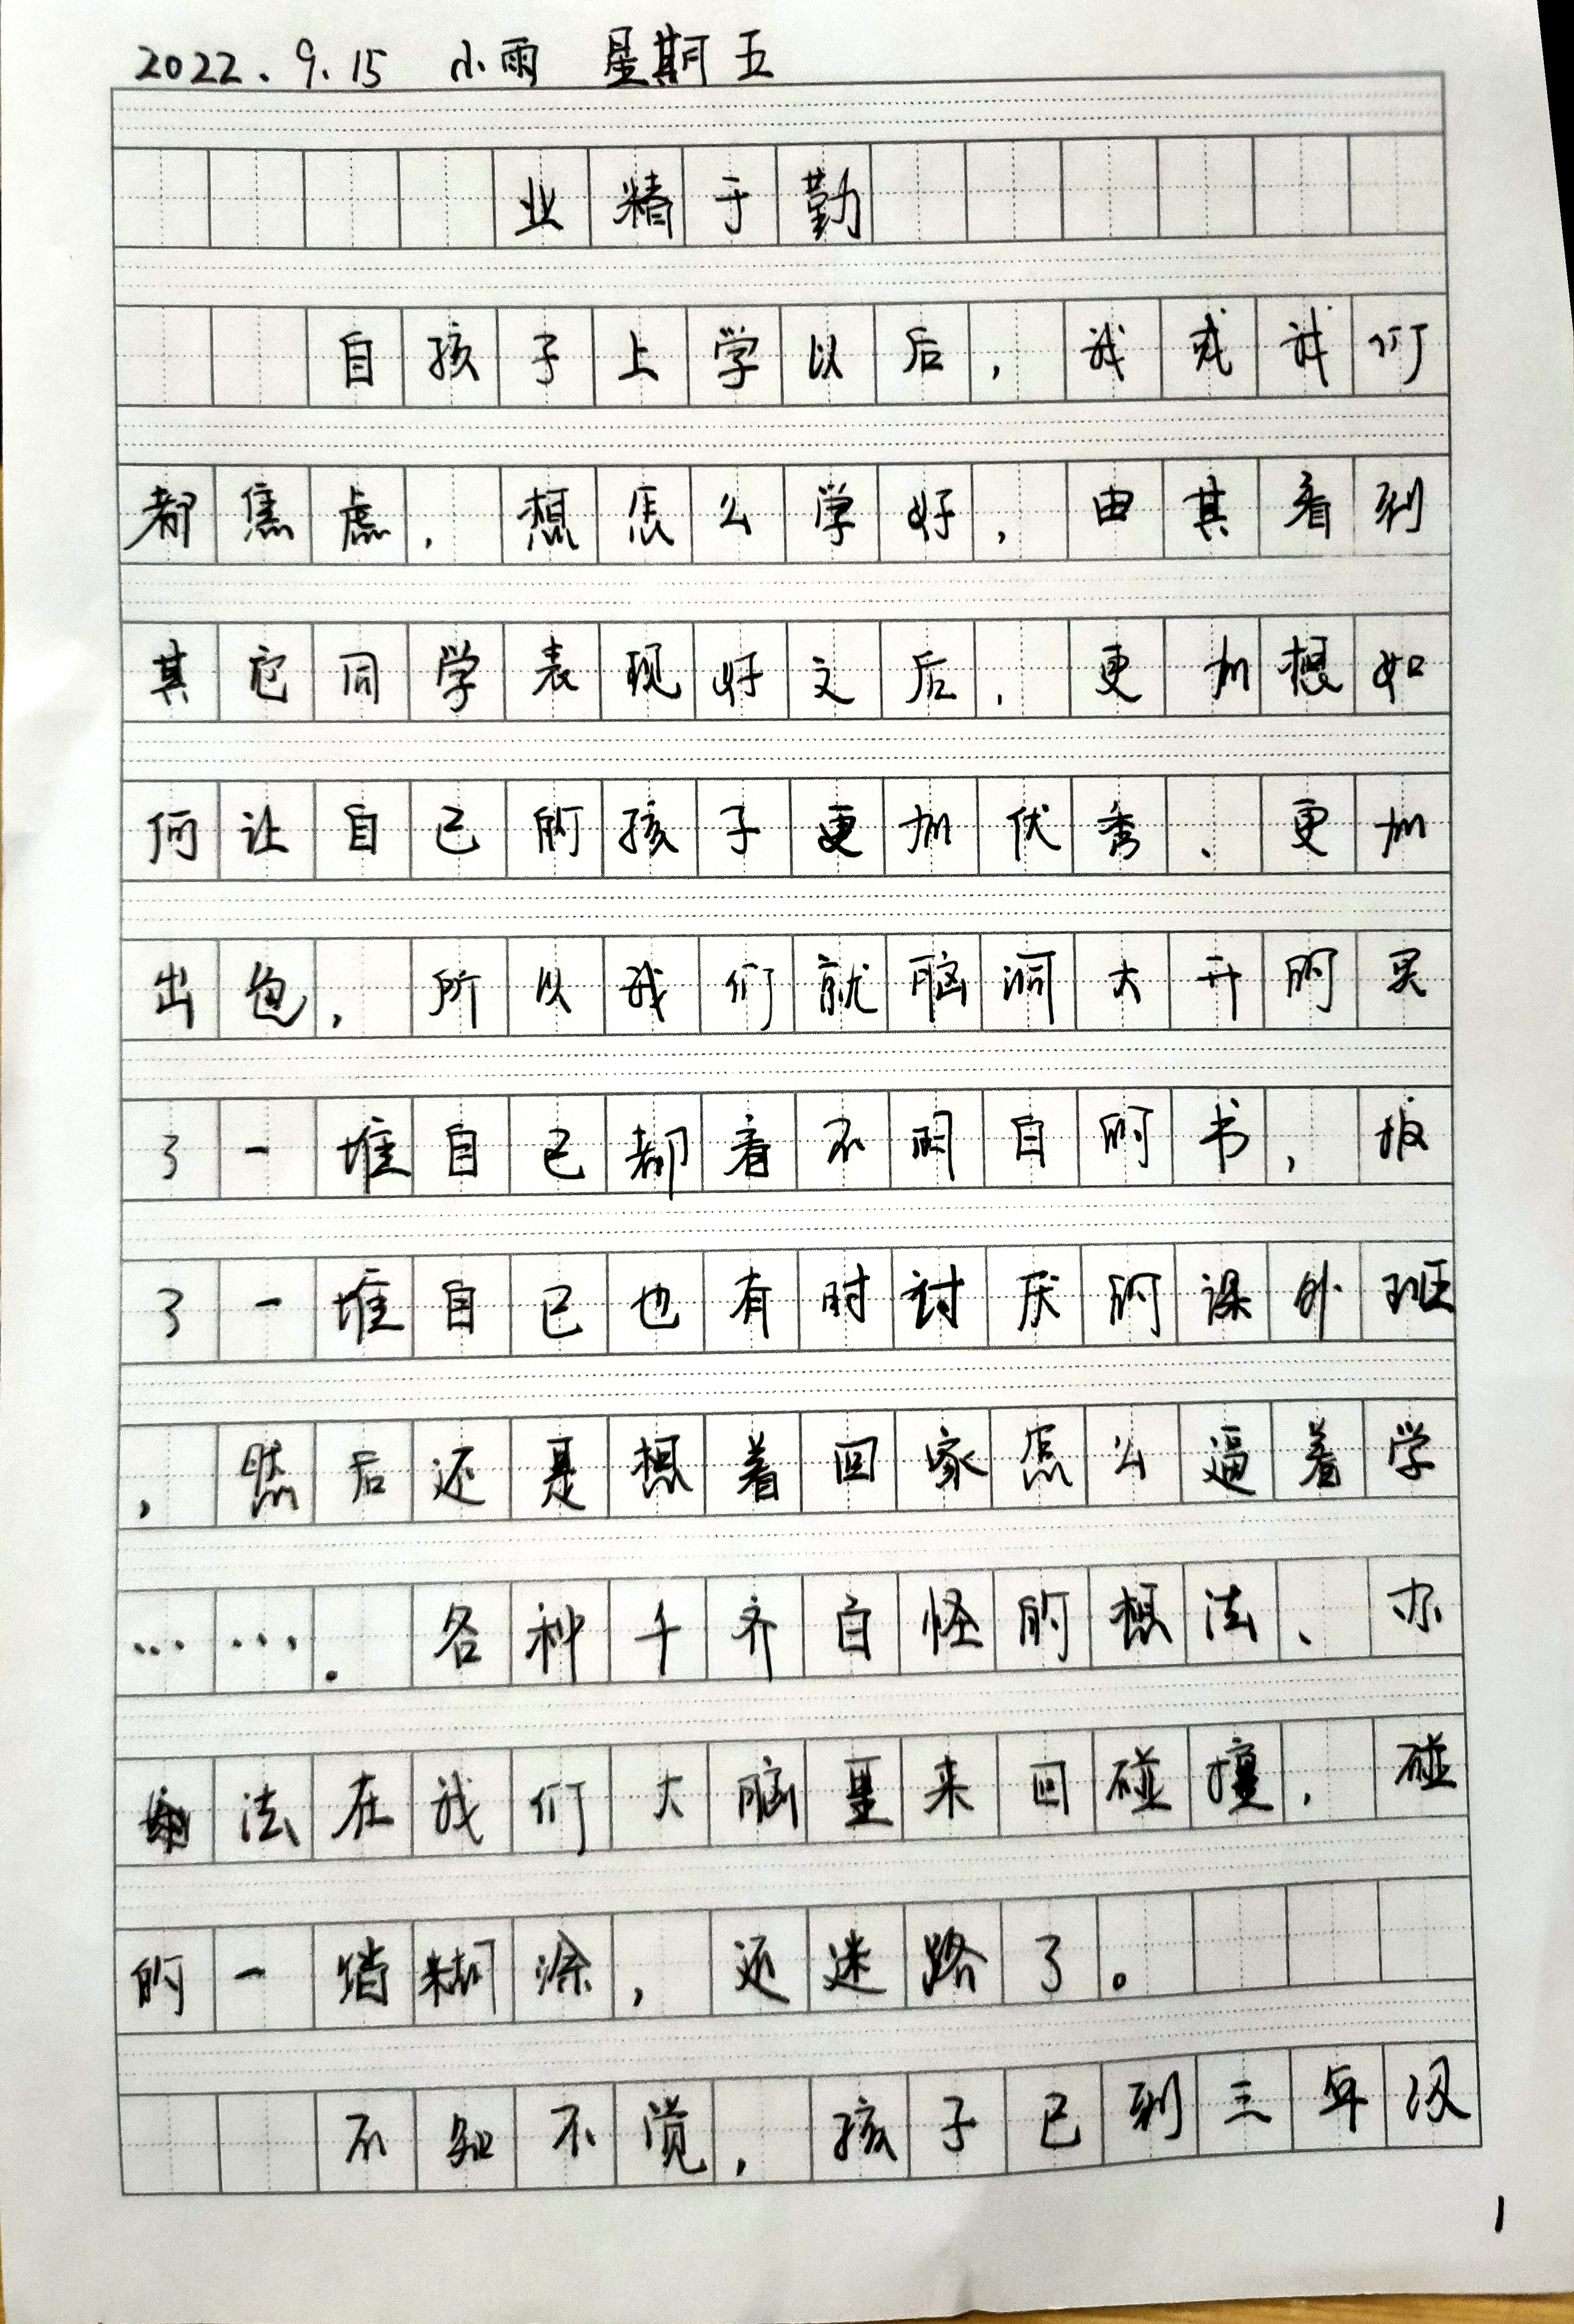 2022.9.15 小雨 星期五
业精于勤
自孩子上学以后，我或许们
都焦虑，想怎么学好，由其看到
其它同学表现好之后，更加想如
何让自己的孩子更加优秀、更加
出色，所以我们就脑洞大开的买
了一堆自己都看不明白的书，报
了一堆自己也有时讨厌的课外班
，然后还是想着回家怎么逼着学
……。各种千奇百怪的想法、办
法在我们大脑里来回碰撞，碰
的一塌糊涂，还迷路了。
不知不觉，孩子已到三年级
1